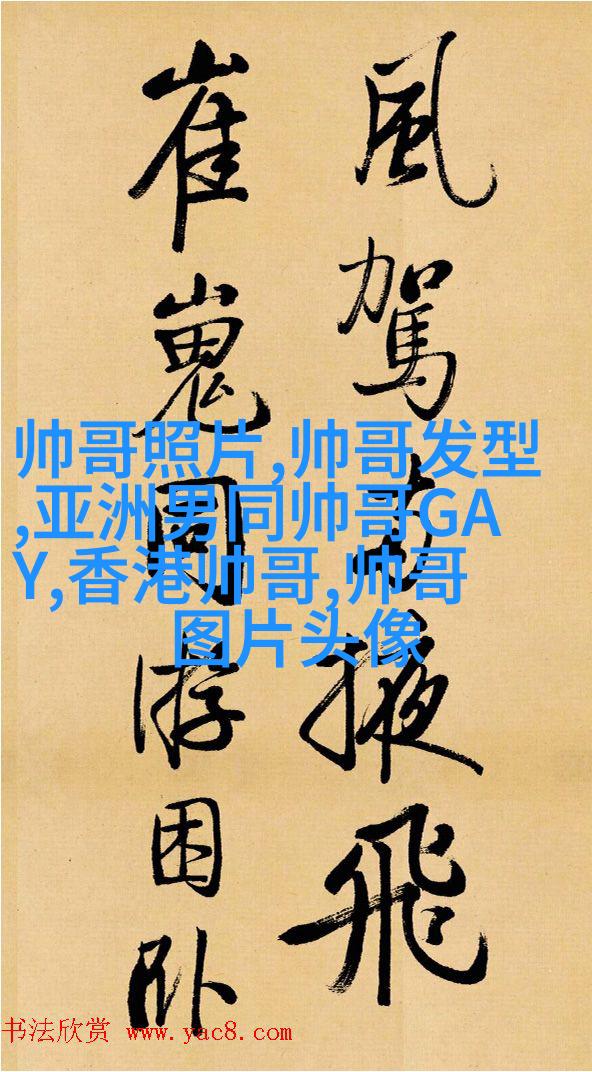 風駕掖飛
崔嵬同游困卧
帅哥照片,帅哥发型
,亚洲男同帅哥GA
Y,香港帅哥,帅哥
图片头像
书法欣赏 www.yac8.com